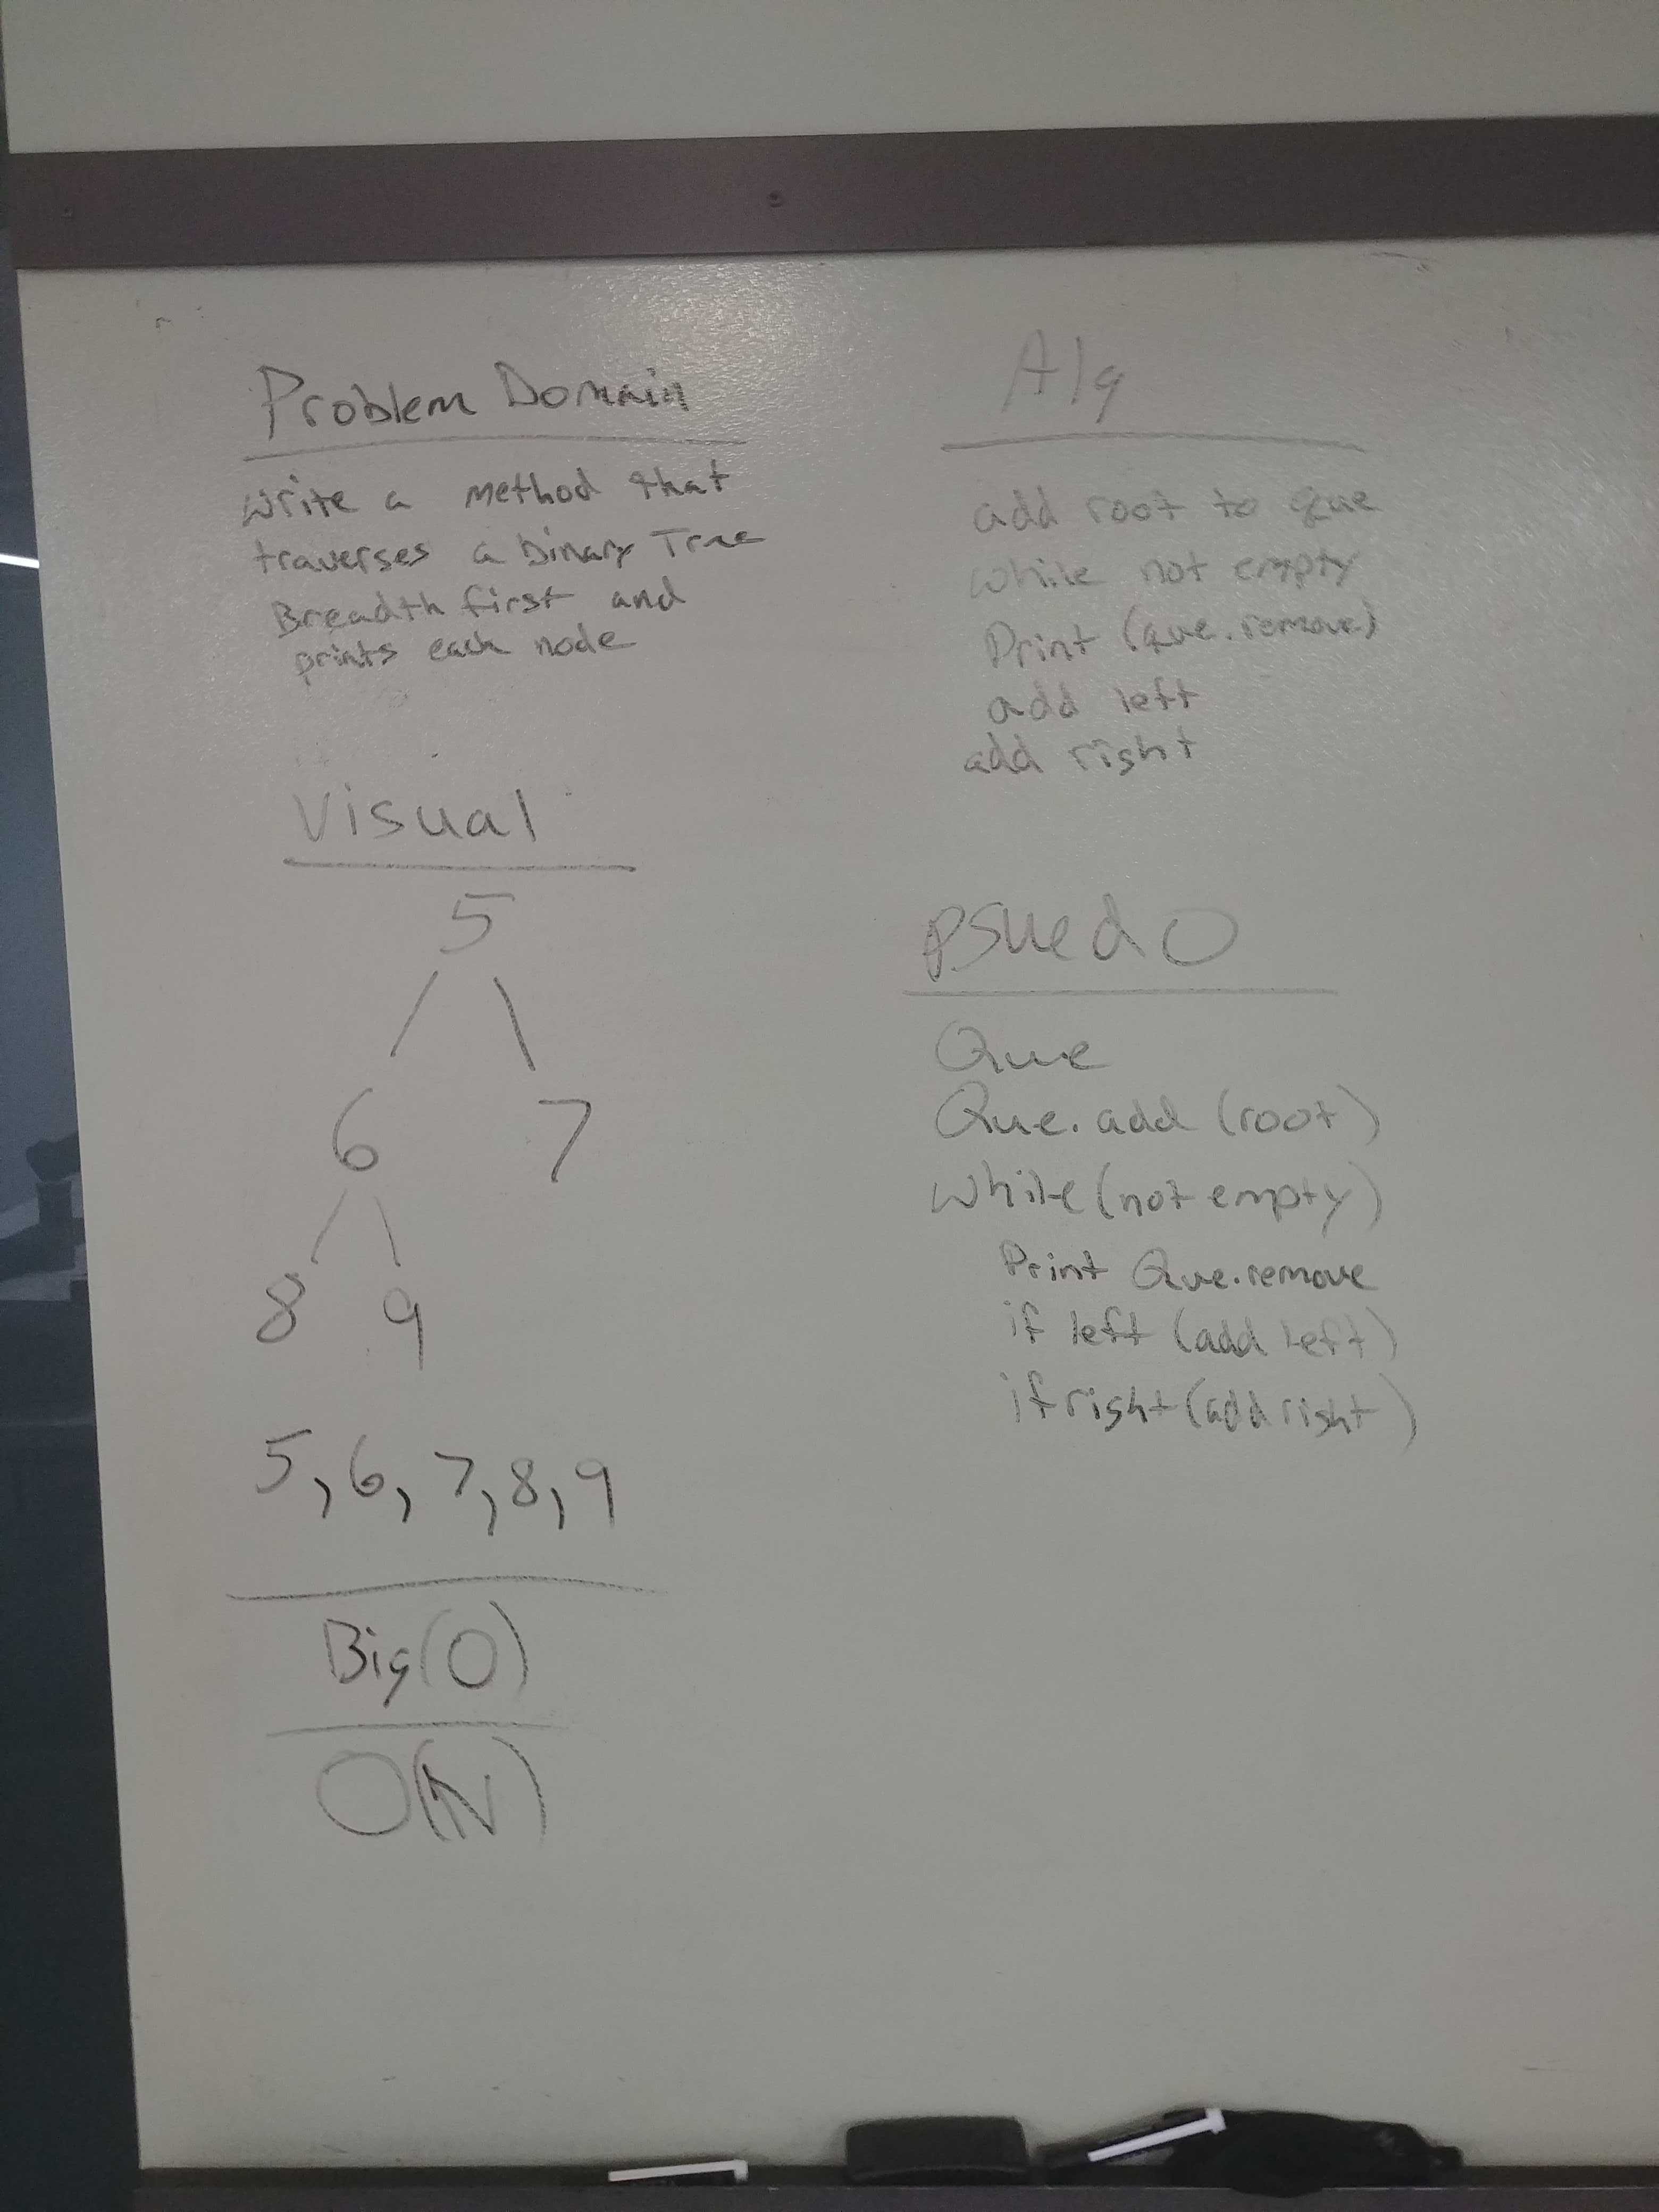 Problem Domain
write a method that
traverses a binary Tree
Breadth first and
prints each node
Visual
5
6 7
8 9
5, 6, 7, 8, 9
Big(O)
O(N)
Alg
add root to que
while not empty
Print (que.remove)
add left
add right
psuedo
Que
Que.add (root)
while (not empty)
Print Que.remove
if left (add left)
if right (add right)